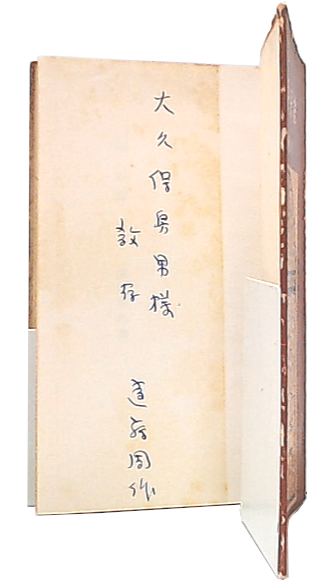 大久保房男様
敎存
遠藤周作